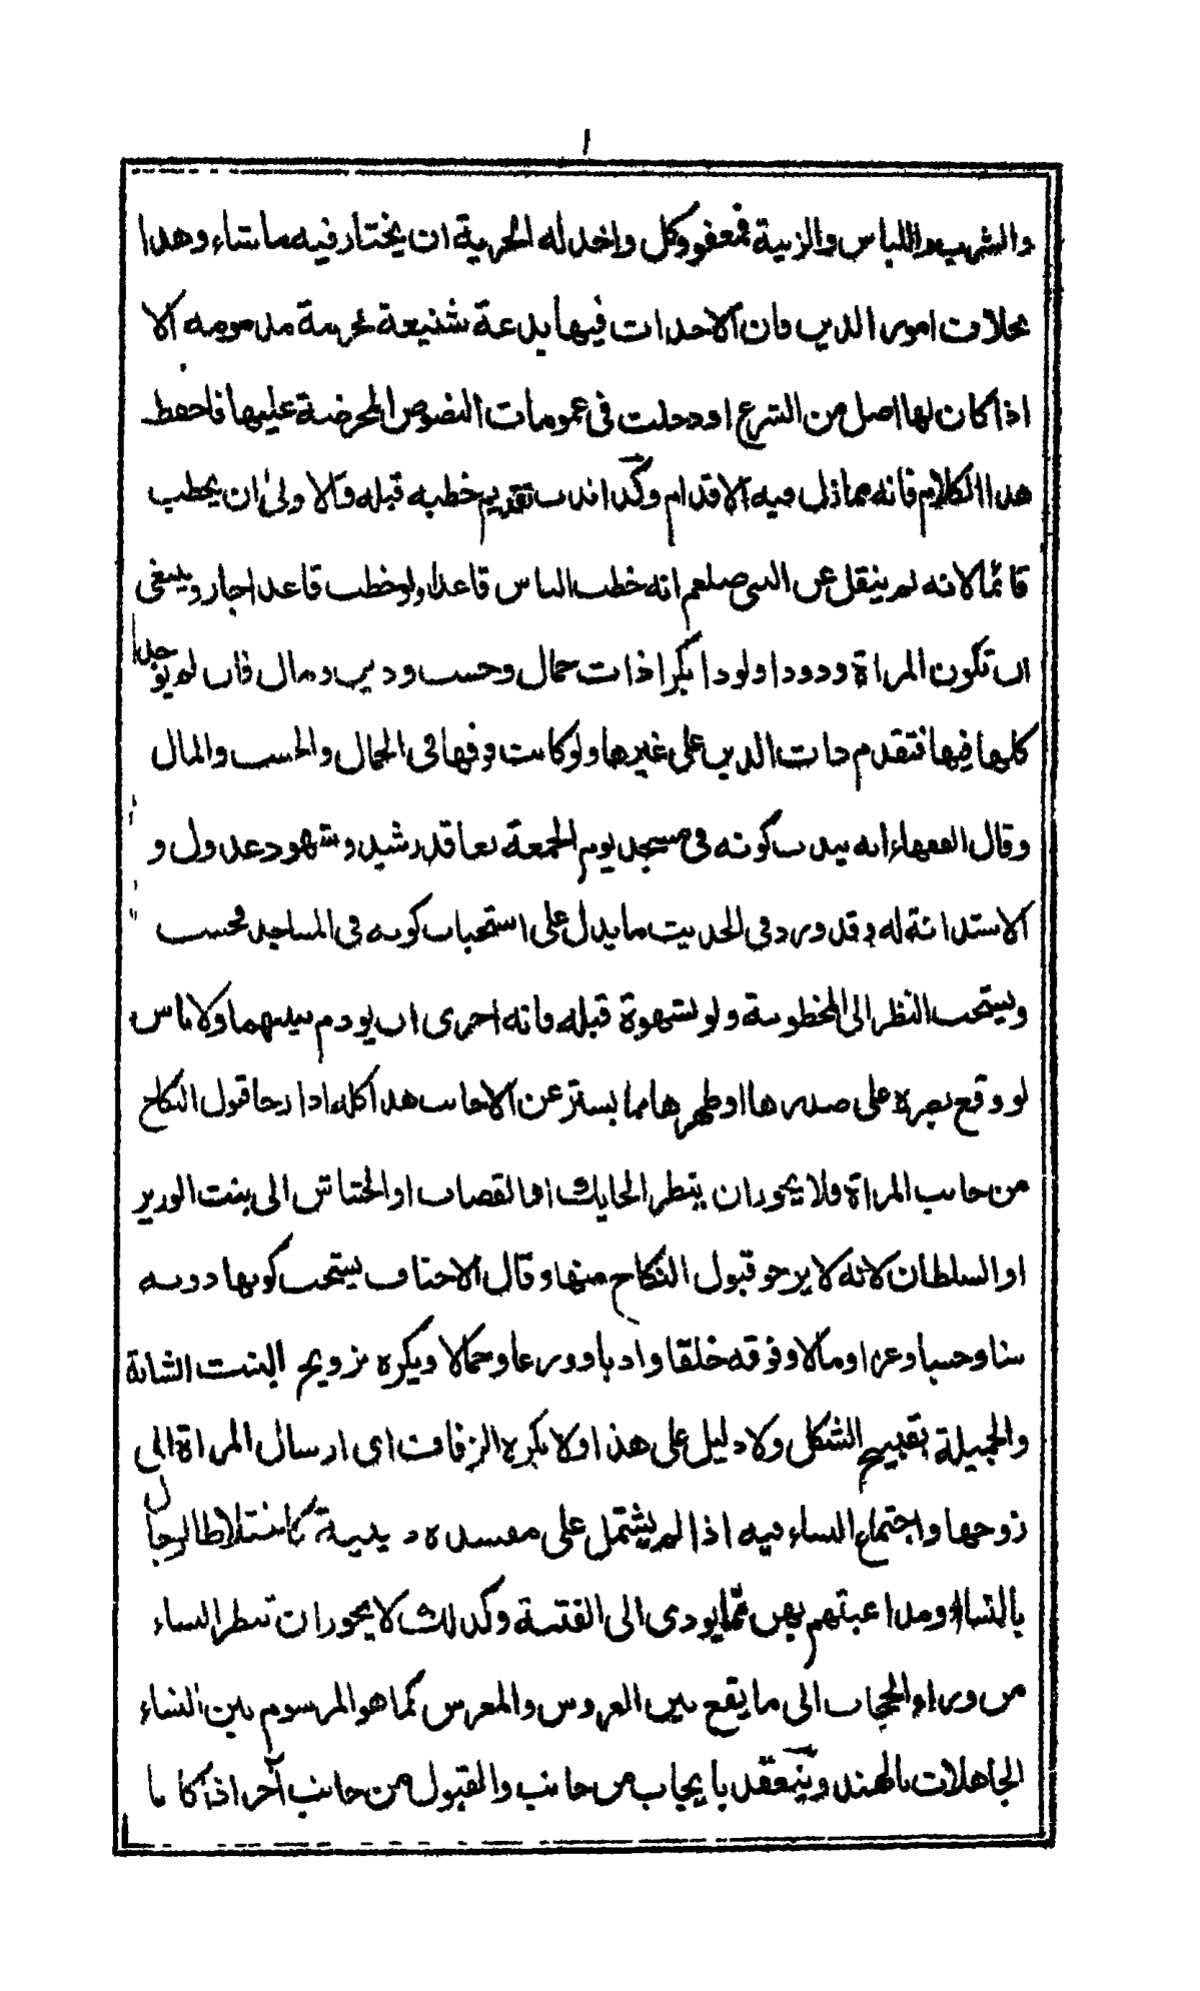 ١
والشرب واللباس والزينة فمعفو وكل واحد له الحرية ان يختار فيه ما شاء وهذا
بخلاف امور الدين فان الاحداث فيها بدعة شنيعة محرمة مذمومة الا
اذا كان لها اصل من الشرع او دخلت فى عمومات النصوص المحرضة عليها فاحفظ
هذا الكلام فانه مما زل فيه الاقدام وكذا ندب تقديم خطبه قبله والاولى ان يخطب
قائما لانه لم ينقل عن النبى صلعم انه خطب الناس قاعدا ولو خطب قاعدا جاز وينبغى
ان تكون المراة ودودا ولودا بكرا ذات جمال وحسب ودين ومال فان لم يوجد
كلها فيها فتقدم ذات الدين على غيرها ولو كانت فوقها فى الجمال والحسب والمال
وقال الفقهاء انه يندب كونه فى مسجد يوم الجمعة بعاقد رشيد وشهود عدول و
الاستدانة له وقد ورد فى الحديث ما يدل على استحباب كونه فى المساجد فحسب
ويستحب النظر الى المخطوبة ولو بشهوة قبله فانه احرى ان يودم بينهما ولا باس
لو وقع بصره على صدرها او ظهرها مما يستر عن الاجانب هذا كله اذا رجا قبول النكاح
من جانب المراة فلا يجوز ان ينظر الحايك او القصاب او الحشاش الى بنت الوزير
او السلطان لانه لا يرجو قبول النكاح منها وقال الاحناف يستحب كونها دونه
سنا وحسبا وعزا ومالا وفوقه خلقا وادبا وورعا وجمالا ويكره تزويج البنت الشابة
والجميلة بقبيح الشكل ولا دليل على هذا ولا يكره الزفاف اى ارسال المراة الى
زوجها واجتماع النساء فيه اذا لم يشتمل على مفسدة دينية كاختلاط الرجال
بالنساء ومداعبتهم بهن مما يودى الى الفتنة وكذلك لا يجوز ان تنظر النساء
من وراء الحجاب الى ما يقع بين العروس والمعرس كما هو المرسوم بين النساء
الجاهلات بالهند وينعقد بايجاب من جانب والقبول من جانب آخر اذا كانا